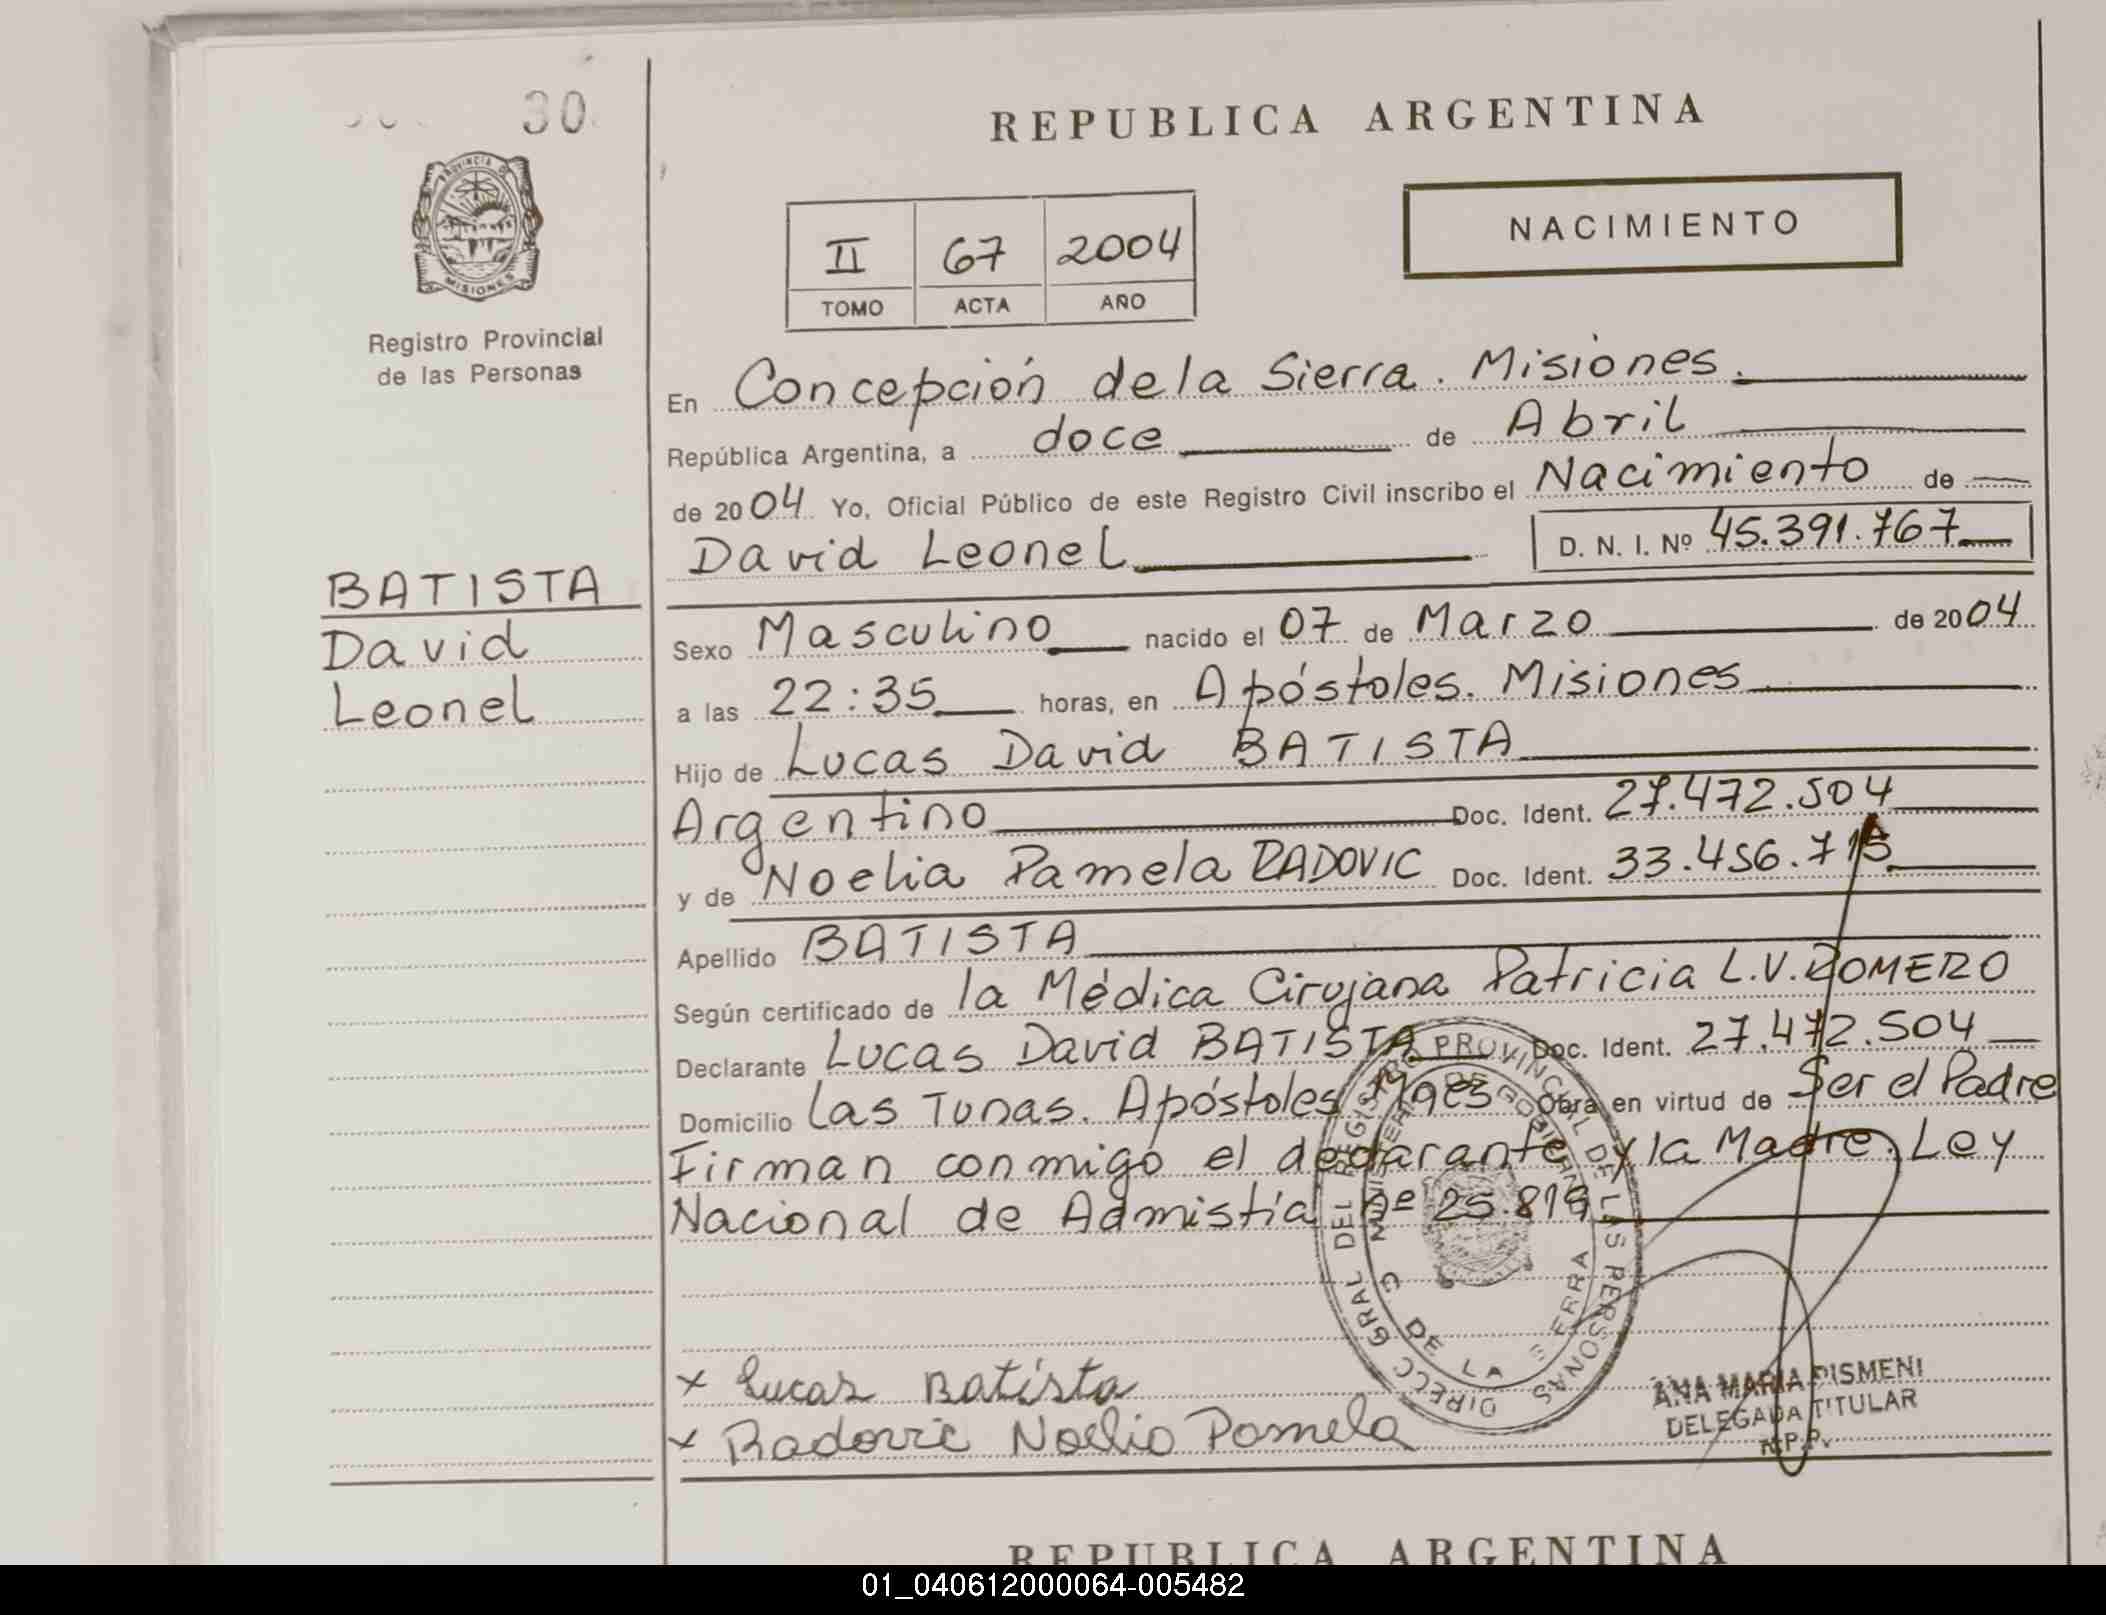 30
PROVINCIA DE
MISIONES
Registro Provincial
de las Personas
BATISTA
David
Leonel
REPUBLICA ARGENTINA
II 67 2004
TOMO ACTA AÑO
NACIMIENTO
En Concepción de la Sierra. Misiones.
República Argentina, a doce de Abril
de 2004 Yo, Oficial Público de este Registro Civil inscribo el Nacimiento de
David Leonel D. N. I. Nº 45.391.767
Sexo Masculino nacido el 07 de Marzo de 2004
a las 22:35 horas, en Apóstoles. Misiones
Hijo de Lucas David BATISTA
Argentino Doc. Ident. 27.472.504
y de Noelia Pamela RADOVIC Doc. Ident. 33.456.715
Apellido BATISTA
Según certificado de la Médica Cirujana Patricia L.V. ROMERO
Declarante Lucas David BATISTA Doc. Ident. 27.472.504
Domicilio Las Tunas. Apóstoles Mnes Obra en virtud de Ser el Padre
Firman conmigo el declarante y la Madre. Ley
Nacional de Admistía nº 25.819
DIRECC GRAL DEL REGISTRO PROVINCIAL DE LAS PERSONAS
DE LA SIERRA
x Lucas Batista
x Radovic Noelia Pamela
ANA MARIA PISMENI
DELEGADA TITULAR
R.P.P.
REPUBLICA ARGENTINA
01_040612000064-005482